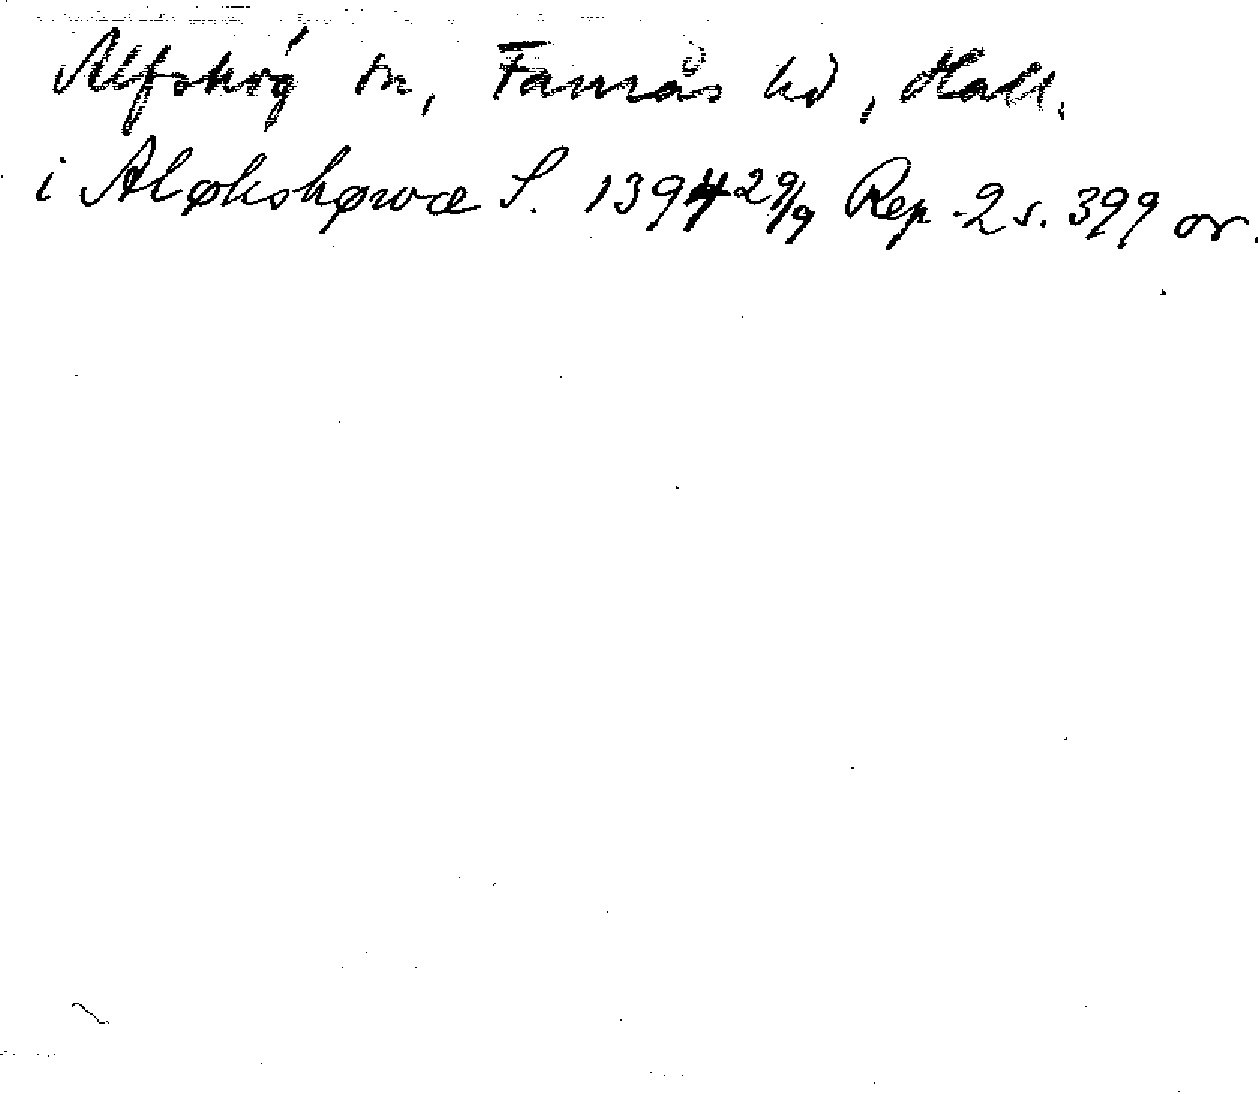 Alfshög sn, Faurås hd, Hall.
i Aløkshøwæ S. 1394 29/9 Rep. 2 s. 399 or.